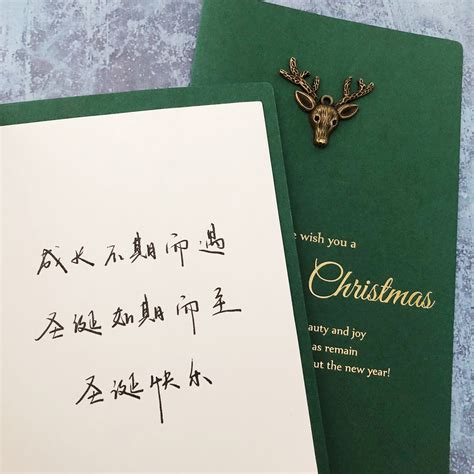 成长不期而遇
圣诞如期而至
圣诞快乐
wish you a
Christmas
and joy
as remain
the new year!